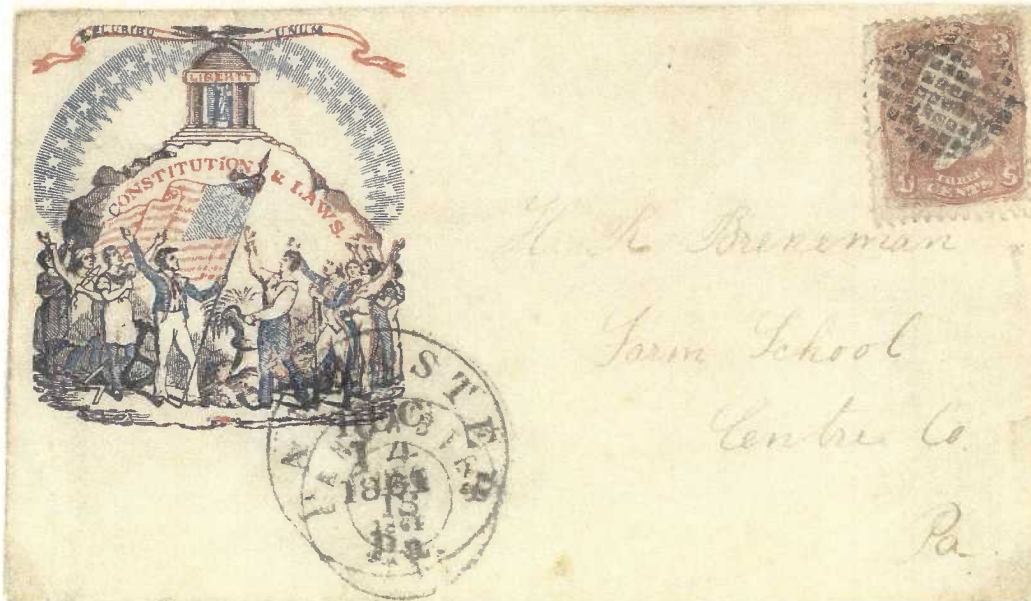 E PLURIBU UNUM
LIBERTY
CONSTITUTION & LAWS.
3 3
THREE
CENTS
U S
H K Breneman
Farm School
Centre Co
Pa
LANCASTER
14
Pa